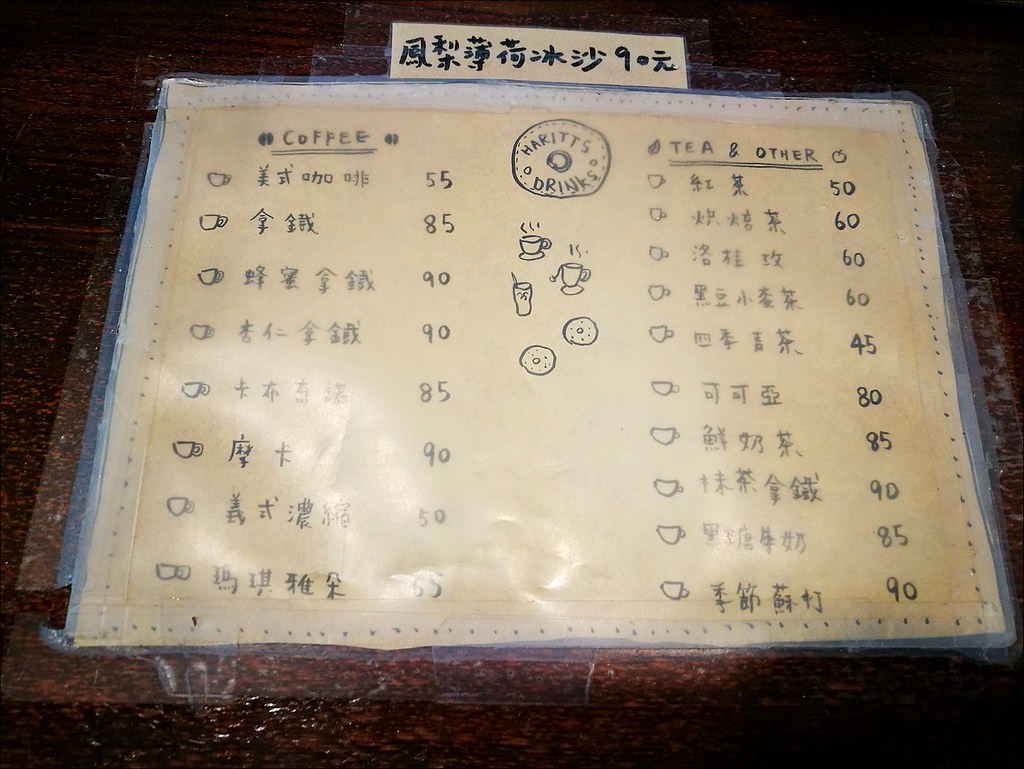 鳳梨薄荷冰沙90元
COFFEE
美式咖啡 55
拿鐵 85
蜂蜜拿鐵 90
杏仁拿鐵 90
卡布奇諾 85
摩卡 90
義式濃縮 50
瑪琪雅朵
HARITTS
DRINKS
TEA & OTHER
紅茶 50
烘焙茶 60
洛桂玫 60
黑豆小麥茶 60
四季青茶 45
可可亞 80
鮮奶茶 85
抹茶拿鐵 90
黑糖牛奶 85
季節蘇打 90